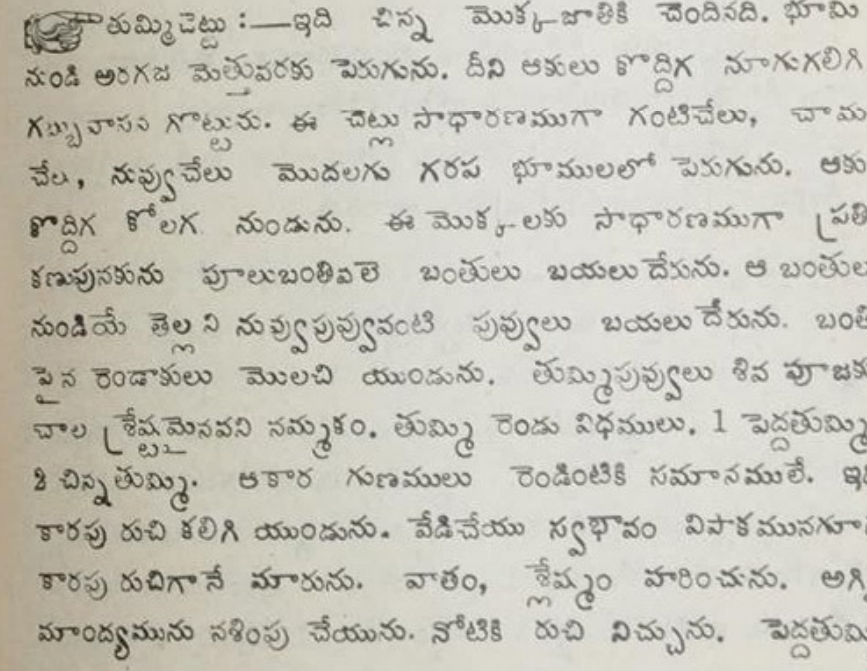 తుమ్మిచెట్టు :—ఇది చిన్న మొక్కజాతికి చెందినది. భూమి
నుండి అరగజ మెత్తువరకు పెరుగును. దీని ఆకులు కొద్దిగ నూగుగలిగి
గబ్బువాసన గొట్టును. ఈ చెట్లు సాధారణముగా గంటిచేలు, చామ
చేల, నువ్వుచేలు మొదలగు గరప భూములలో పెరుగును. ఆకు
కొద్దిగ కోలగ నుండును. ఈ మొక్కలకు సాధారణముగా ప్రతి
కణుపునకును పూలుబంతివలె బంతులు బయలుదేరును. ఆ బంతుల
నుండియే తెల్లని నువ్వుపువ్వువంటి పువ్వులు బయలుదేరును. బంతి
పైన రెండాకులు మొలచి యుండును. తుమ్మిపువ్వులు శివ పూజకు
చాల శ్రేష్ఠమైనవని నమ్మకం. తుమ్మి రెండు విధములు. 1 పెద్దతుమ్మి
2 చిన్నతుమ్మి. ఆకార గుణములు రెండింటికి సమానములే. ఇది
కారపు రుచి కలిగి యుండును. వేడిచేయు స్వభావం విపాకమునగూ
కారపు రుచిగానే మారును. వాతం, శ్లేష్మం హరించును. అగ్ని
మాంద్యమును నశింపు చేయును. నోటికి రుచి నిచ్చును. పెద్దతుమ్మి